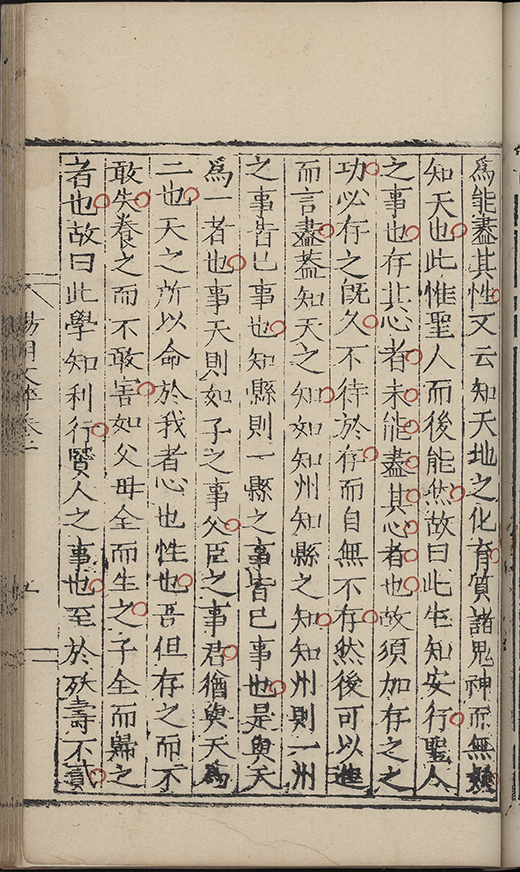 爲能盡其性又云知天地之化育質諸鬼神而無疑
知天也此惟聖人而後能然故曰此生知安行聖人
之事也存其心者未能盡其心者也故須加存之之
功必存之旣久不待於存而自無不存然後可以進
而言盡蓋知天之知如知州知縣之知知州則一州
之事皆已事也知縣則一縣之事皆已事也是與天
爲一者也事天則如子之事父臣之事君猶與天爲
二也天之所以命於我者心也性也吾但存之而不
敢失養之而不敢害如父母全而生之子全而歸之
者也故曰此學知利行賢人之事也至於殀壽不貳